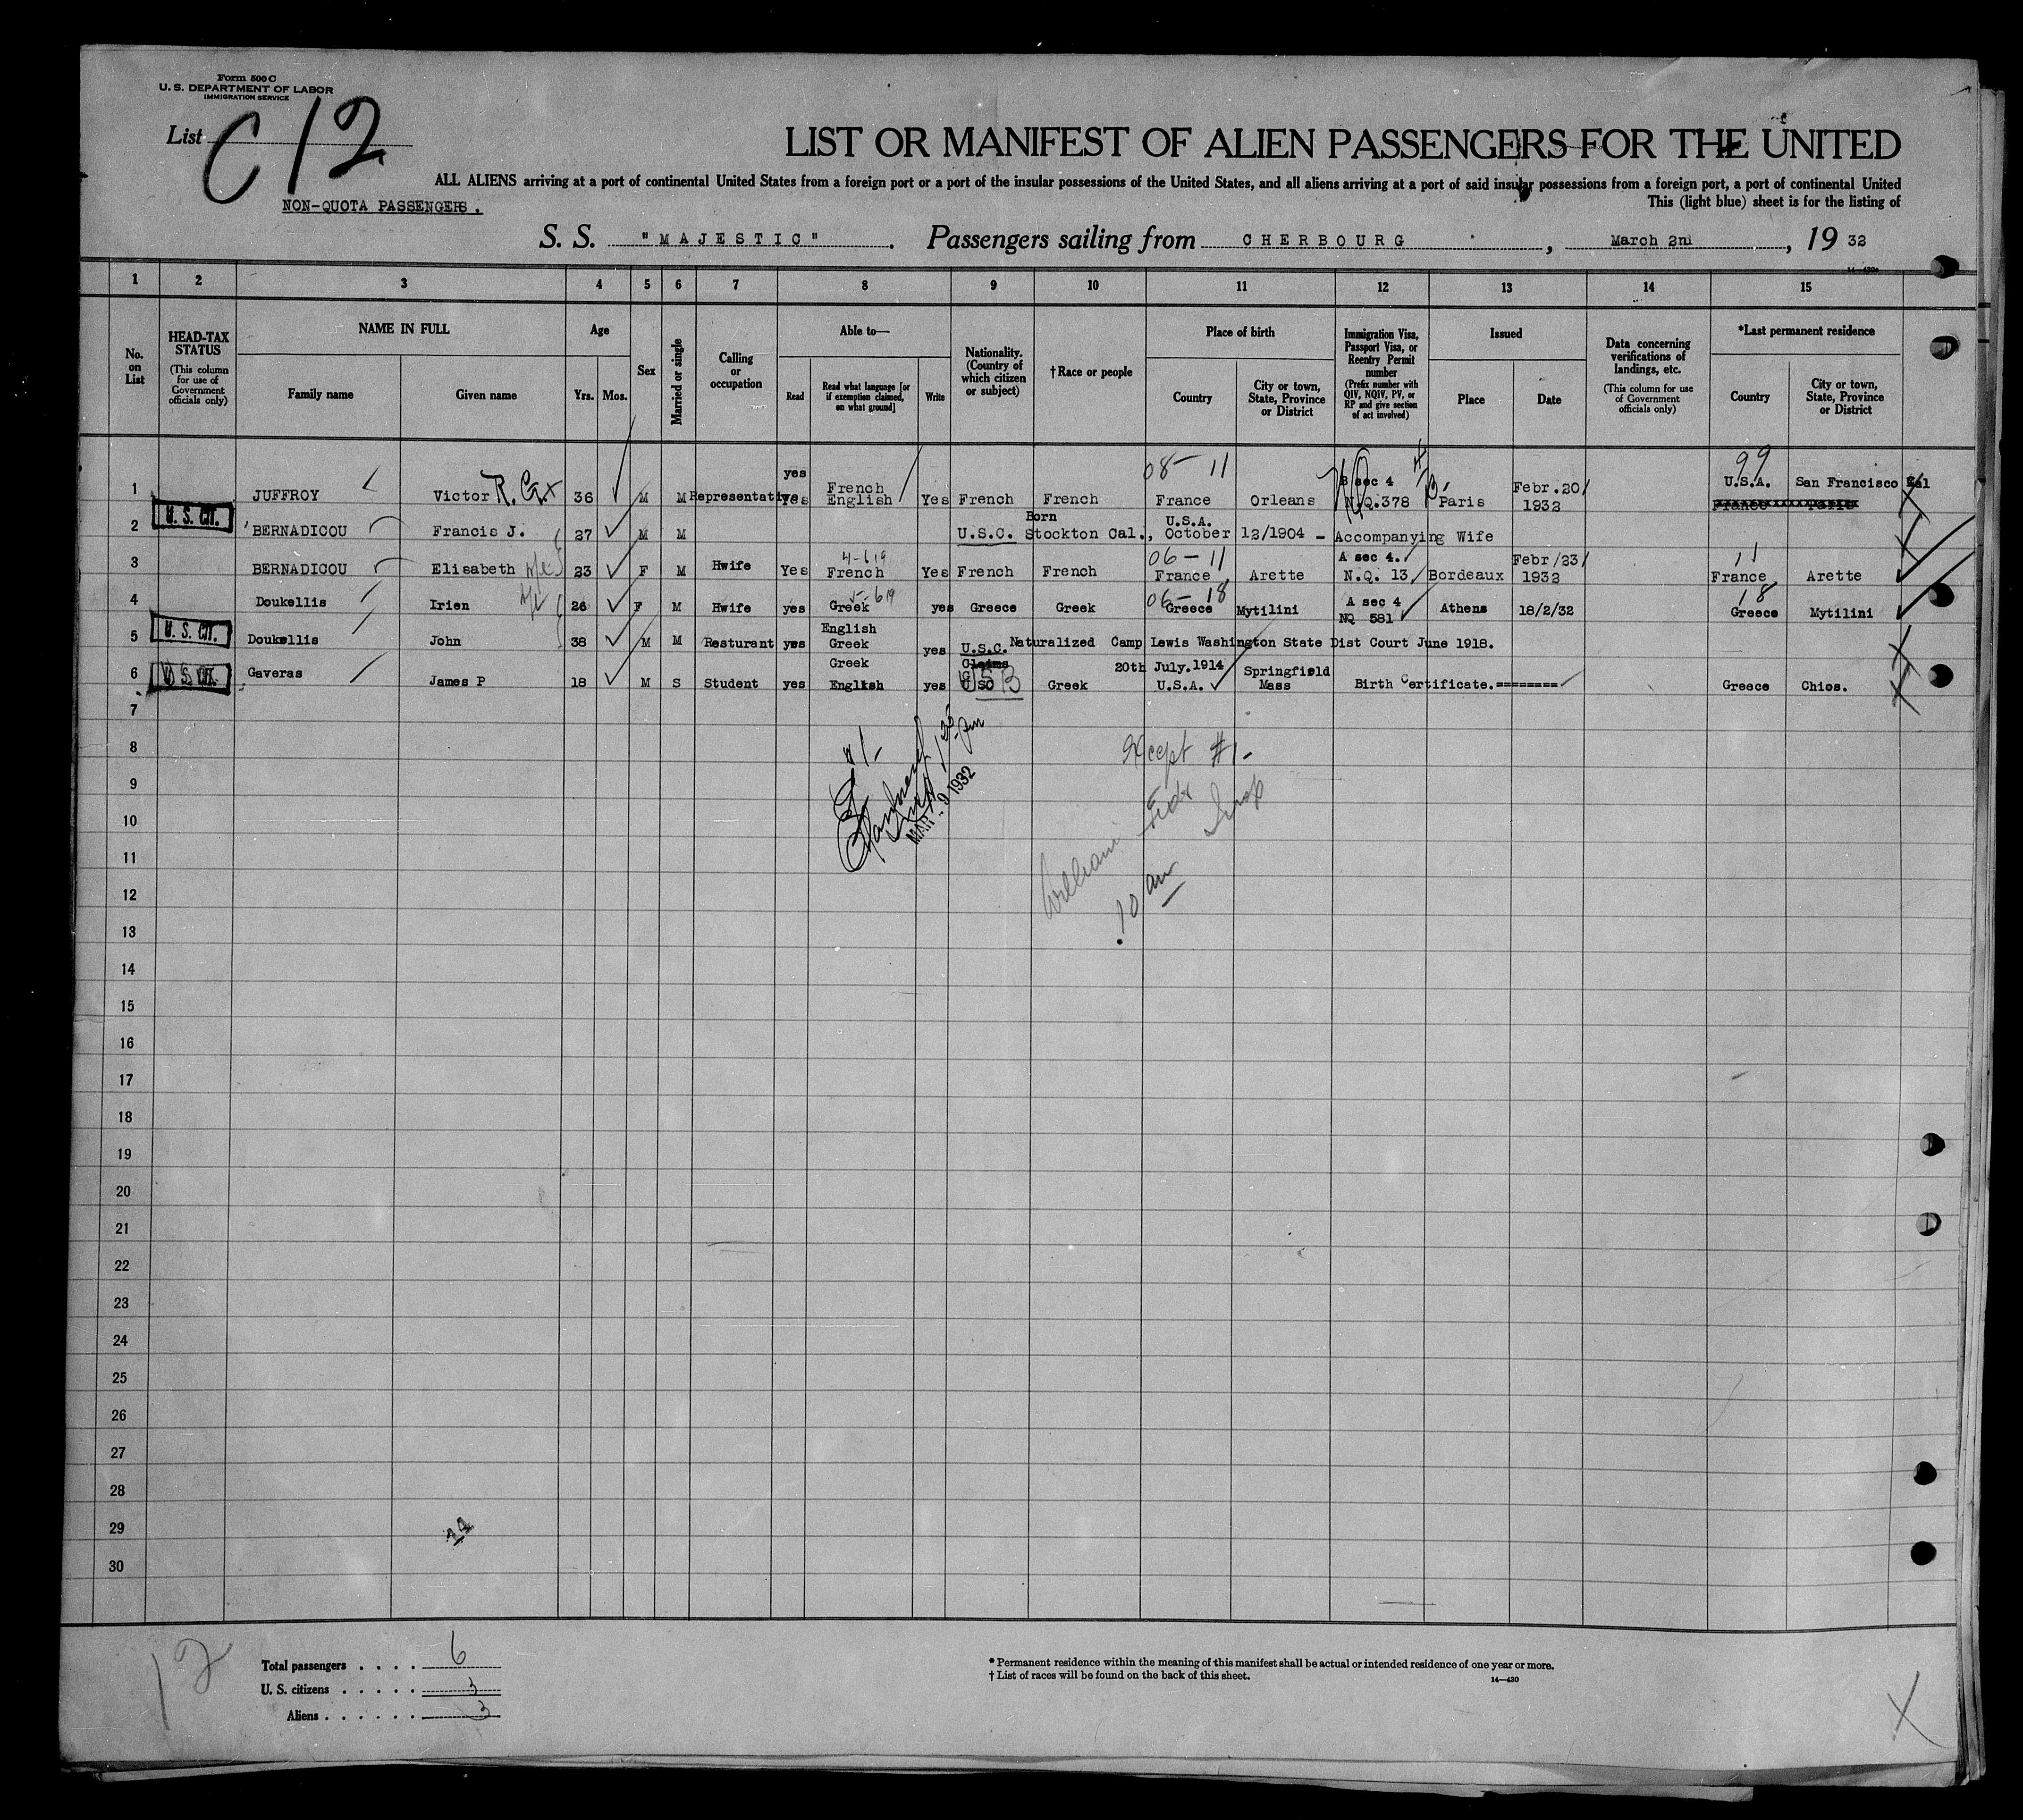 Form 500 C
U. S. DEPARTMENT OF LABOR
IMMIGRATION SERVICE
List C 12
LIST OR MANIFEST OF ALIEN PASSENGERS FOR THE UNITED
ALL ALIENS arriving at a port of continental United States from a foreign port or a port of the insular possessions of the United States, and all aliens arriving at a port of said insular possessions from a foreign port, a port of continental United
This (light blue) sheet is for the listing of
NON-QUOTA PASSENGERS.
S. S. "MAJESTIC". Passengers sailing from CHERBOURG, March 2nd, 19 32
14-430
1 2 3 4 5 6 7 8 9 10 11 12 13 14 15
No. on List
HEAD-TAX STATUS (This column for use of Government officials only)
NAME IN FULL
Family name
Given name
Age
Yrs. Mos.
Sex
Married or single
Calling or occupation
Able to—
Read
Read what language [or if exemption claimed, on what ground]
Write
Nationality. (Country of which citizen or subject)
†Race or people
Place of birth
Country
City or town, State, Province or District
Immigration Visa, Passport Visa, or Reentry Permit number (Prefix number with QIV, NQIV, PV, or RP and give section of act involved)
Issued
Place
Date
Data concerning verifications of landings, etc. (This column for use of Government officials only)
*Last permanent residence
Country
City or town, State, Province or District
08-11 99
1 JUFFROY Victor 36 M M Representative yes yes French English Yes French French France Orleans B sec 4 N.Q.378 Paris Febr.20/ 1932 U.S.A. San Francisco Cal
France Paris
U. S. CIT.
2 BERNADICOU Francis J. 27 M M U.S.C. Born Stockton Cal., U.S.A. October 12/1904 - Accompanying Wife
4-619 06-11 11
3 BERNADICOU Elisabeth 23 F M Hwife Yes French Yes French French France Arette A sec 4. N.Q. 13 Bordeaux Febr/23/ 1932 France Arette
5-619 06-18 18
4 Doukellis Irien 26 F M Hwife yes Greek yes Greece Greek Greece Mytilini A sec 4 NQ 581 Athens 18/2/32 Greece Mytilini
U. S. CIT.
5 Doukellis John 38 M M Resturant yes English Greek yes U.S.C. Naturalized Camp Lewis Washington State Dist Court June 1918.
U. S. CIT.
6 Gaveras James P 18 M S Student yes Greek English yes Claims USC Greek 20th July.1914 U.S.A. Springfield Mass Birth Certificate.======== Greece Chios.
7
8 #1-
Except #1-
MAR -9 1932
9
10
11
William
12
10 am
13
14
15
16
17
18
19
20
21
22
23
24
25
26
27
28
29
30
12
Total passengers .... 6
U. S. citizens ..... 3
Aliens ...... 3
* Permanent residence within the meaning of this manifest shall be actual or intended residence of one year or more.
† List of races will be found on the back of this sheet.
14-430
X